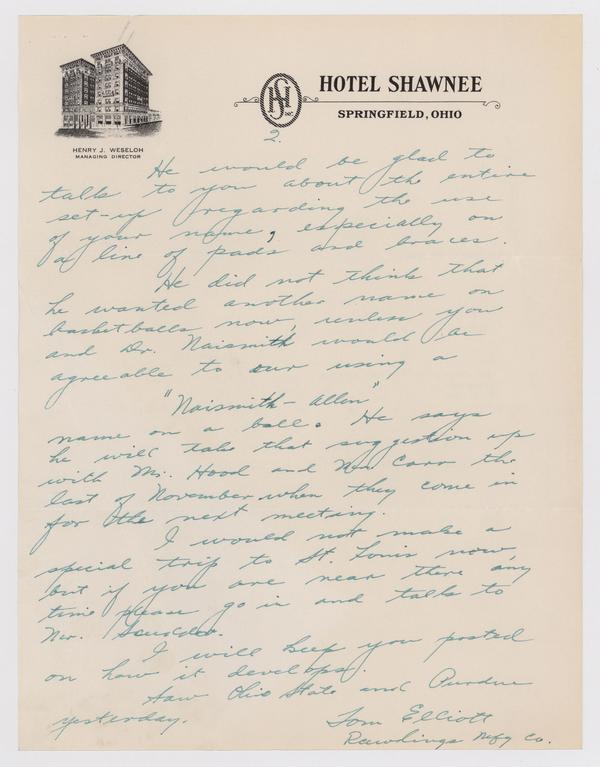 HOTEL SHAWNEE
SPRINGFIELD, OHIO
HENRY J. WESELOH
MANAGING DIRECTOR
HS
INC.
2.
He would be glad to
talk to you about the entire
set-up regarding the use
of your name, especially on
a line of pads and braces.
He did not think that
he wanted another name on
basketballs now, unless you
and Dr. Naismith would be
agreeable to our using a
"Naismith - Allen"
name on a ball. He says
he will take that suggestion up
with Mr. Hood and Mr. Carr the
last of November when they come in
for the next meeting.
I would not make a
special trip to St. Louis now,
but if you are near there any
time please go in and talk to
Mr.
I will keep you posted
on how it develops.
Saw Ohio State and Purdue
yesterday.
Tom Elliott
Rawlings Mfg Co.